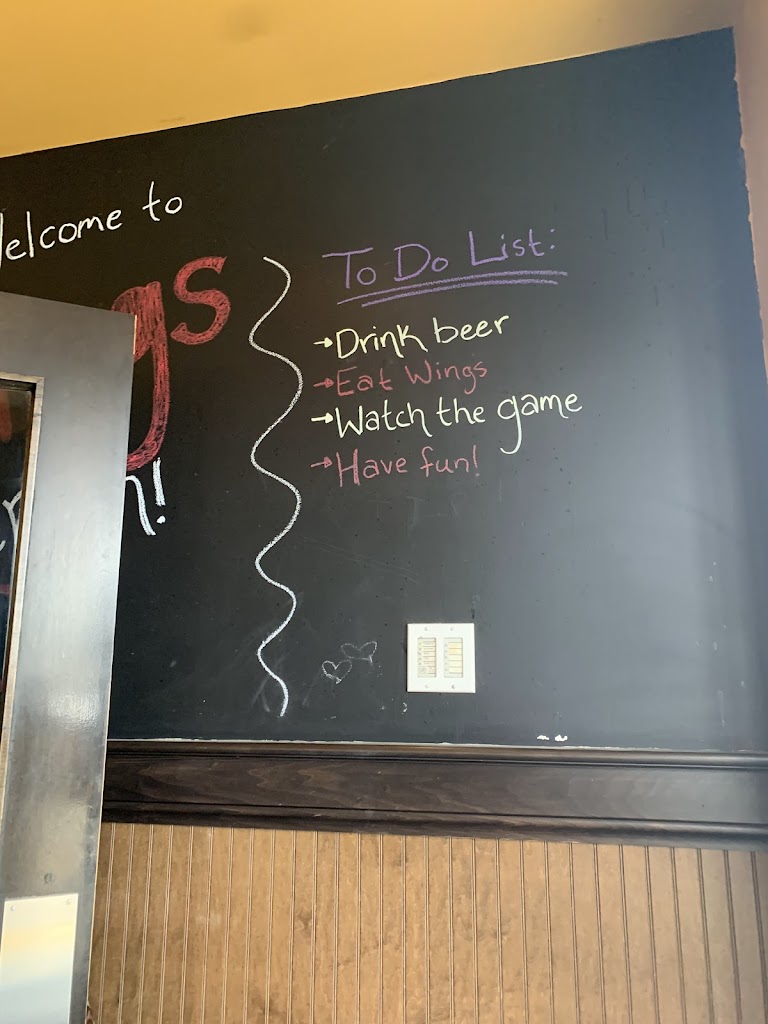 Welcome to
gs
To Do List:
→Drink beer
→Eat Wings
→Watch the game
→Have fun!